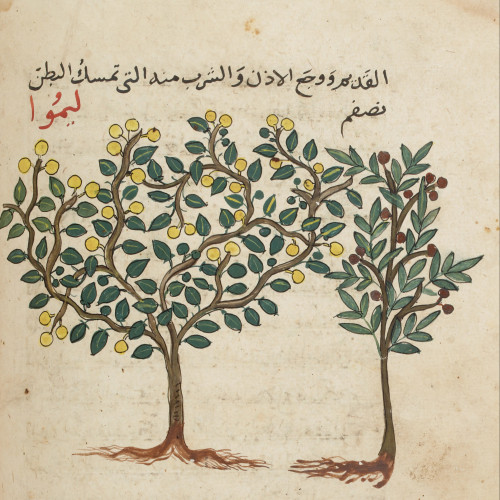 القديم ووجع الاذن والشرب منه التى تمسك البطن
نصفم
ليموا